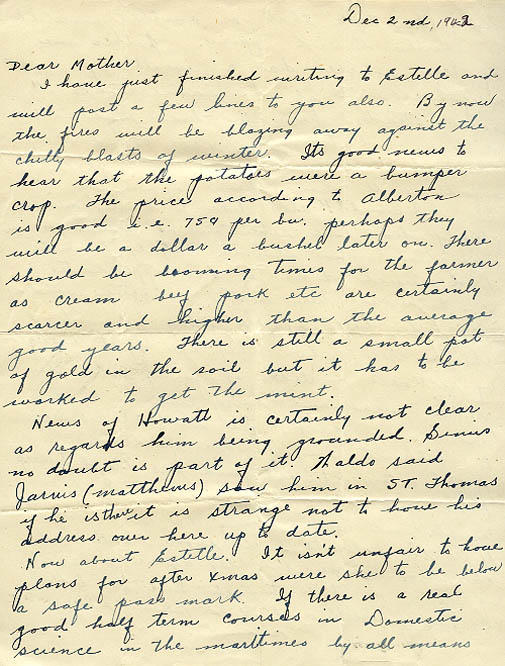 Dec 2nd, 1942
Dear Mother
I have just finished writing to Estelle and
will post a few lines to you also. By now
the fires will be blazing away against the
chilly blasts of winter. Its good news to
hear that the potatoes were a bumper
crop. The price according to Alberton
is good i.e. 75¢ per bu. perhaps they
will be a dollar a bushel later on. There
should be booming times for the farmer
as cream beef pork etc are certainly
scarcer and higher than the average
good years. There is still a small pot
of gold in the soil but it has to be
worked to get the mint.
News of Howatt is certainly not clear
as regards him being grounded. Sinus
no doubt is part of it. Waldo said
Jarvis (Matthews) saw him in ST. Thomas
if he is there it is strange not to have his
address over here up to date.
Now about Estelle. It isn't unfair to have
plans for after Xmas were she to be below
a safe pass mark. If there is a real
good half term courses in Domestic
science in the maritimes by all means